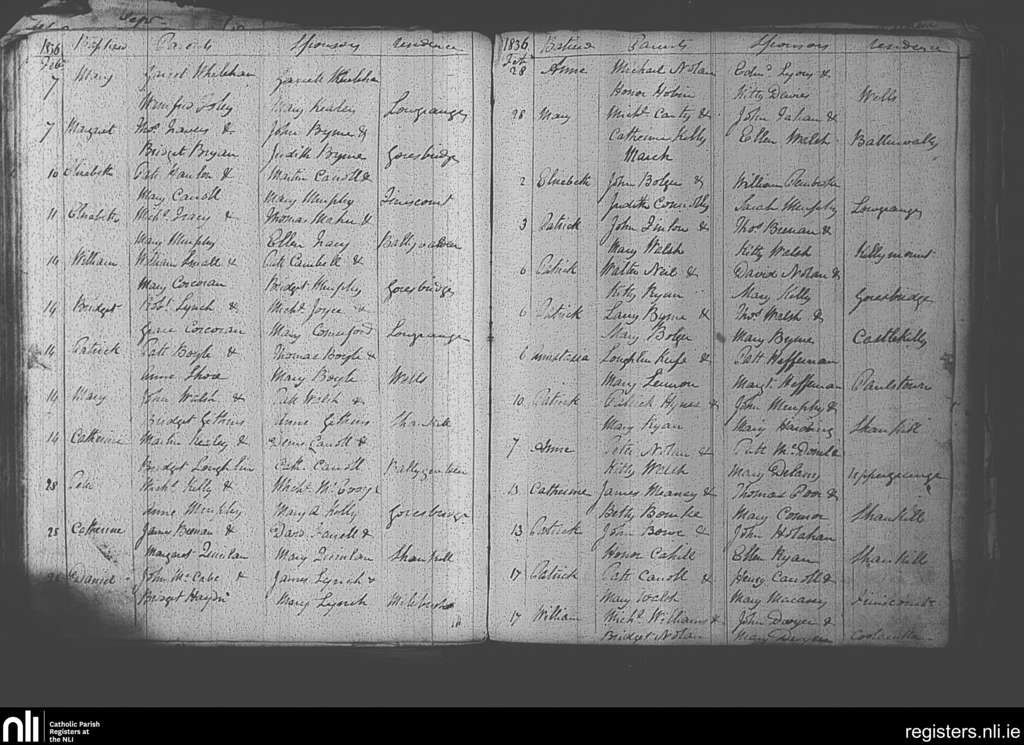 1836 Baptised Parents Sponsors residence
Feb
7 Mary Garret Whelehan Garrett Whelehan
Winifred Foley Mary Kealey Lowgrange
7 Margret Thos. Travers & John Byrne &
Bridget Bryan Judith Byrne Goresbridge
10 Elisabeth Patt Hanlon & Martin Carroll &
Mary Carroll Mary Murphy Finiscourt
11 Elisabeth Michl. Tracy & Thomas Maher &
Mary Murphy Ellen Tracy
14 William William & Patt Cambell &
Mary Corcoran Bridget Murphy Goresbridge
14 Bridget Robt. Lynch & Michl. Joyce &
Grace Corcoran Mary Comerford Lowgrange
14 Patrick Patt Boyle & Thomas Boyle &
Anne Shea Mary Boyle Wells
14 Mary John Walsh & Patt Walsh &
Bridget Gethins Anne Gethins Shankill
14 Catherine Martin Kealey & Denis Carroll &
Bridget Loughlin Cath. Carroll
28 Peter Michl. Kelly & Michl. McEvoy &
Anne Murphy Mary Kelly Goresbridge
25 Catherine James Brenan & David Farrell &
Margaret Quinlan Mary Quinlan Shankill
Daniel John McCabe & James Lynch &
Bridget Haydn Mary Lynch
1836 Parents Sponsors residence
Feb
28 Anne Michael Nolan Edmd. Lyons &
Honor Hobin Kitty Davies Wells
28 Mary Michl. Canty & John &
Catherine Kelly Ellen Walsh
March
2 Elisabeth John Bolger & William
Judith Connolly Sarah Murphy Lowgrange
3 Patrick John Finlon & Thos. Brenan &
Mary Walsh Kitty Walsh Killymount
6 Patrick Walter Neil & David Nolan &
Kitty Ryan Mary Kelly Goresbridge
6 Patrick Lany Byrne & Thos. Walsh &
Mary Bolger Mary Byrne Castlekelly
6 Anastasia Loughlin Keefe & Patt Heffernan
Mary Lennon Margt. Heffernan Paulstown
10 Patrick Patrick Hynes & John Murphy &
Mary Ryan Mary Harding Shankill
7 Anne Peter Nolan & Patt McDonald
Kitty Walsh Mary Delany uppergrange
13 Catherine James Meaney & Thomas Poor &
Betty Bourke Mary Connor Shankill
13 Patrick John Bowe & John Holahan
Honor Cahill Ellen Ryan Shankill
17 Patrick Patt Carroll & Henry Carroll &
Mary Walsh Mary Macassy Finiscourt
17 William Michl. Williams & John Dwyer &
Bridget Nolan Mary Dwyer
nli
Catholic Parish
Registers at
the NLI
registers.nli.ie